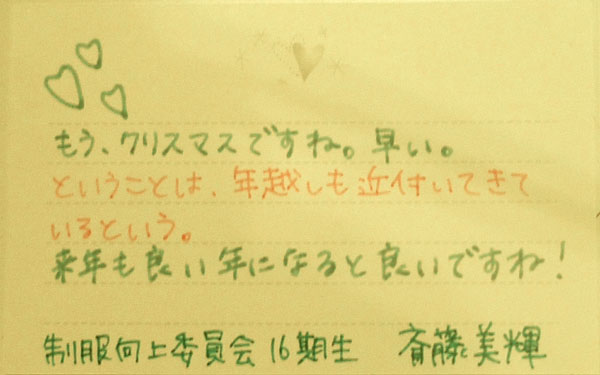 もう、クリスマスですね。早い。
ということは、年越しも近付いてきて
いるという。
来年も良い年になると良いですね!
制服向上委員会16期生 斉藤美輝